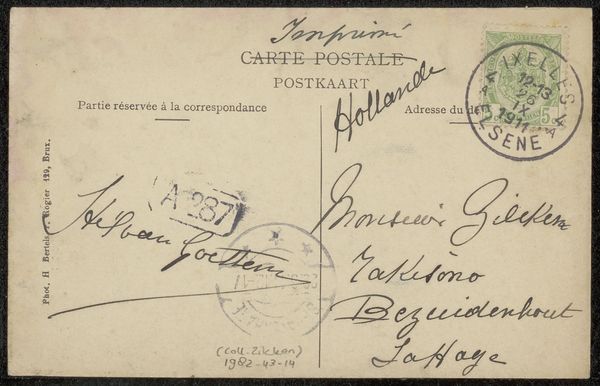 Imprimé
CARTE POSTALE
POSTKAART
Partie réservée à la correspondance
Adresse du de
Hollande
IXELLES 4
12-13
26
IX
1911
ELSENE 4
A A
5
A 287
Monsieur Zilcken
Hakisono
Bezuidenhout
La Haye
Phot. H Bertels, r. Rogier 129, Brux.
(Coll. Zilcken)
1982-43-14